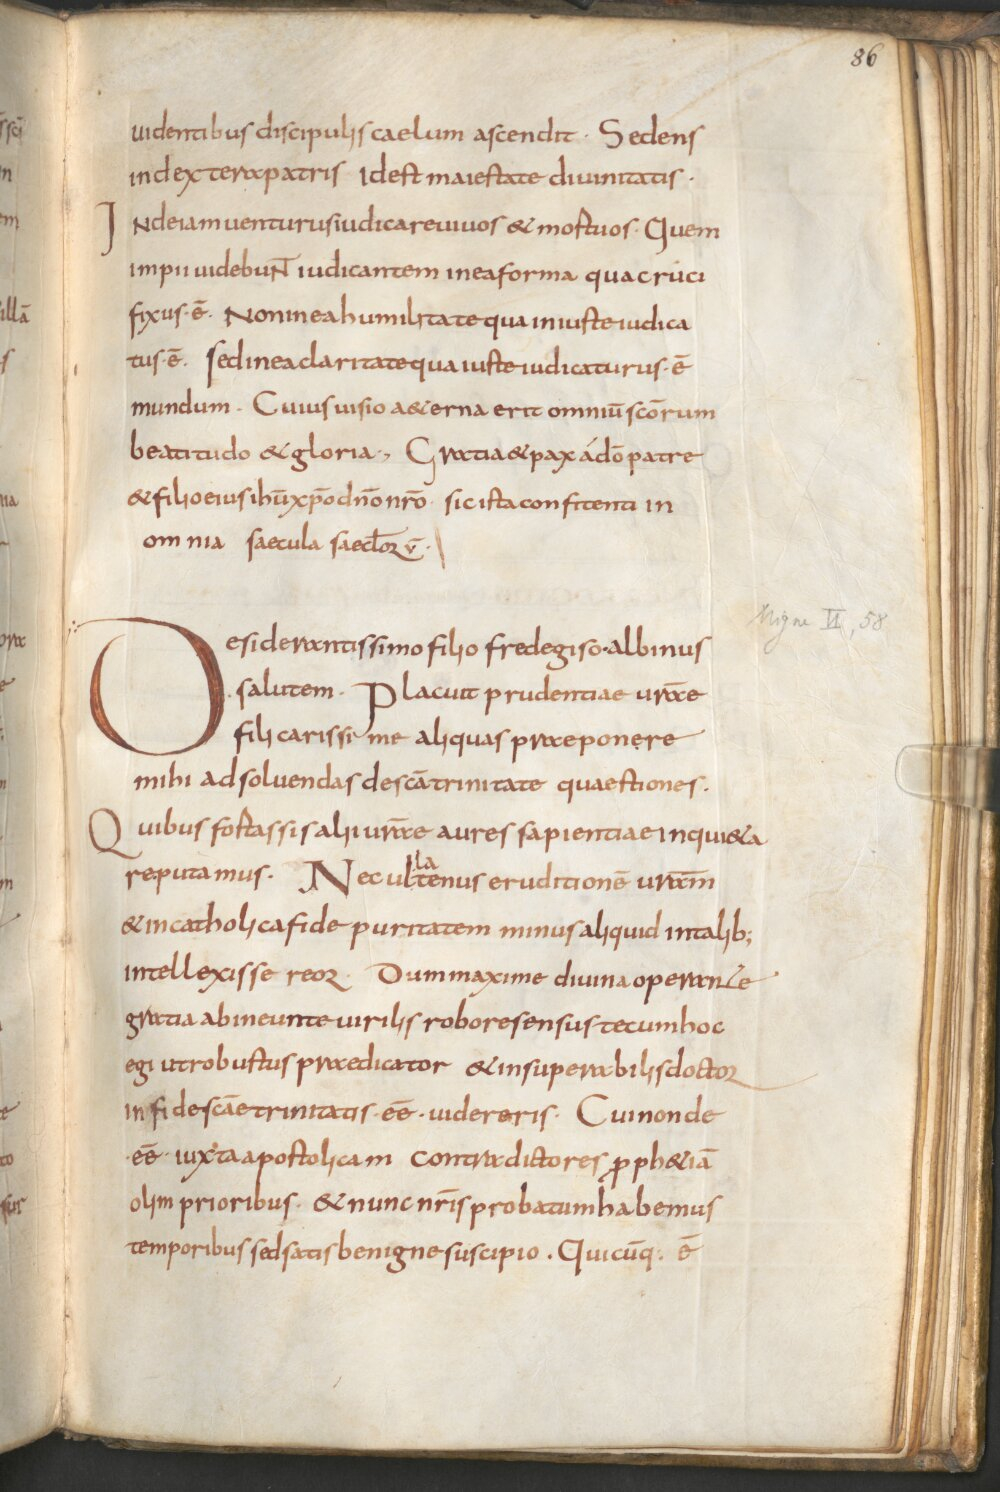 86
uidentibus discipulis caelum ascendit · Sedens
in dextera patris idest maiestate diuinitatis ·
INde iam uenturus iudicare uiuos & mortuos · Quem
impii uidebuNT̄ iudicantem in ea forma qua cruci
fixus · ē · Non in ea humilitate qua iniuste iudica
tus · ē · sed in ea claritate qua iuste iudicaturus · ē
mundum · Cuius uisio a&erna erit omniū scōrum
beatitudo & gloria ·, Gratia & pax á dō patre
& filio eius ihū xp̄o dn̄o nr̄o · sic ista confitenti in
omnia saecula saecl̄oꝝ ·
Desiderantissimo filio fredegiso · albinus
salutem · Placuit prudentiae urāe
fili carissime aliquas praeponere
mihi ad soluendas de scā trinitate quaestiones ·
Quibus fortassis alii urāe aures sapientiae inqui&a
reputamus · Nec ullatenus eruditionē urām̄
& in catholica fide puritatem minus aliquid in talib;
intellexisse reor · Dum maxime diuina operante
gratia ab ineunte uirilis robore sensus tecum hoc
egi ut robustus praedicator & insuperabilis doctor
in fide scāe trinitatis · eē · uidereris · Cui non de
· eē · iuxta apostolicam contradictores ꝓph&iā
olim prioribus · & nunc nr̄is probatum habemus
temporibus sed satis benigne suscipio · Quicūq · ē
Migne II, 58